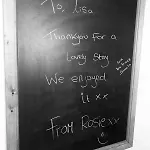 To, Lisa
Thankyou for a
Lovely Stay
We enjoyed
it xx
From Rosie xx